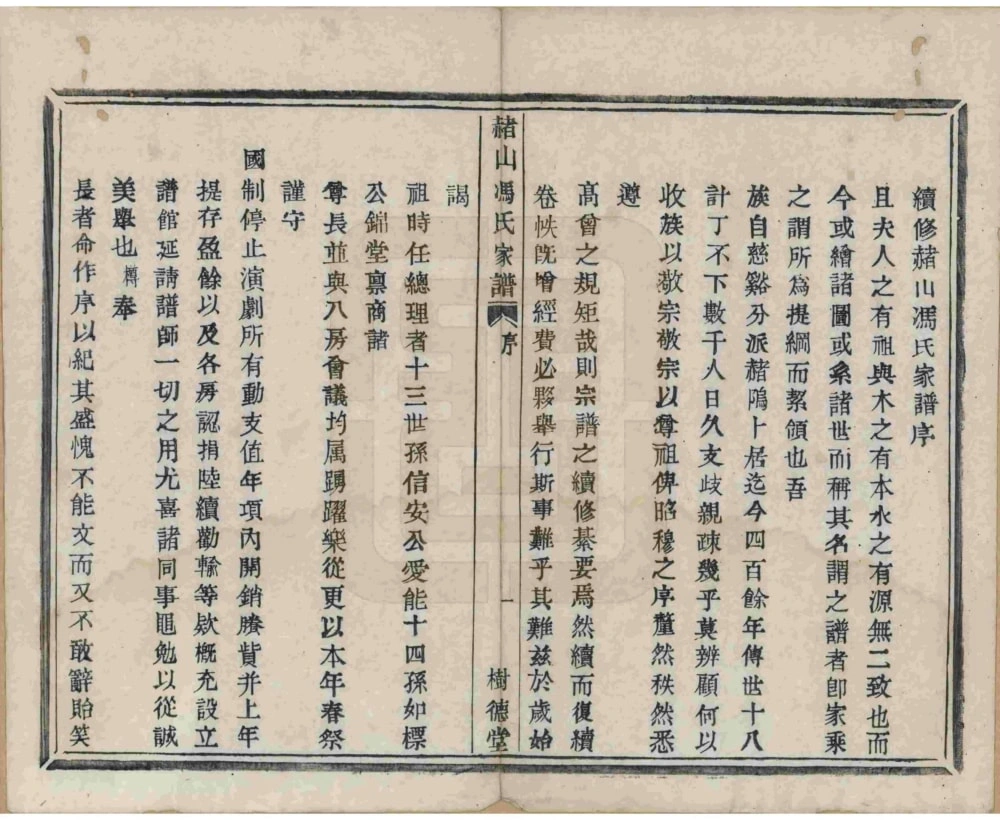 續修赭山馮氏家譜序
且夫人之有祖與木之有本水之有源無二致也而
今或繪諸圖或系諸世而稱其名謂之譜者卽家乘
之謂所爲提綱而絜領也吾
族自慈谿分派赭隝卜居迄今四百餘年傳世十八
計丁不下數千人日久支歧親疎幾乎莫辨顧何以
收族以敬宗敬宗以尊祖俾昭穆之序釐然秩然悉
遵
高曾之規矩哉則宗譜之續修綦要焉然續而復續
卷帙旣增經費必夥舉行斯事難乎其難兹於歲始
赭山馮氏家譜 序 一 樹德堂
謁
祖時任總理者十三世孫信安公愛能十四孫如標
公錦堂禀商諸
尊長並與八房會議均属踴躍樂從更以本年春祭
謹守
國制停止演劇所有動支值年項內開銷賸貲并上年
提存盈餘以及各房認捐陸續勸輸等欵概充設立
譜館延請譜師一切之用尤喜諸同事黽勉以從誠
美舉也樽奉
長者命作序以紀其盛愧不能文而又不敢辭貽笑